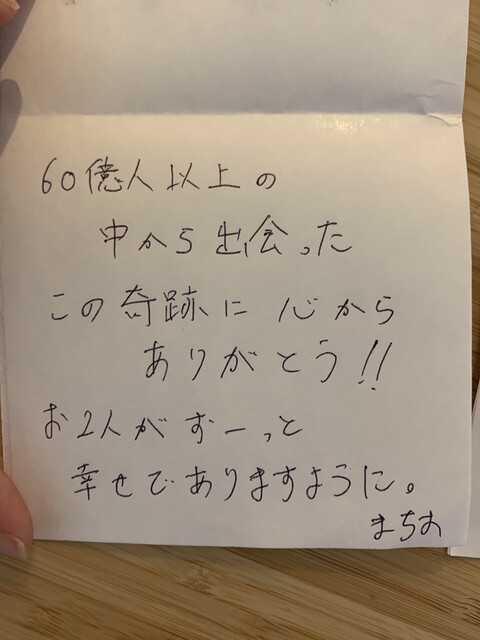 60億人以上の
中から出会った
この奇跡に心から
ありがとう!!
お2人がずーっと
幸せでありますように。
まちお